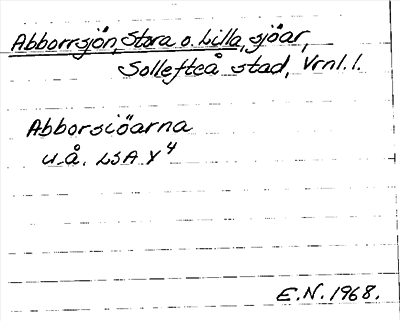 Abborrsjön, Stora o. Lilla, sjöar,
Sollefteå stad, Vrnl. l.
Abborsiöarna
u.å. LSA Y4
E.N. 1968.